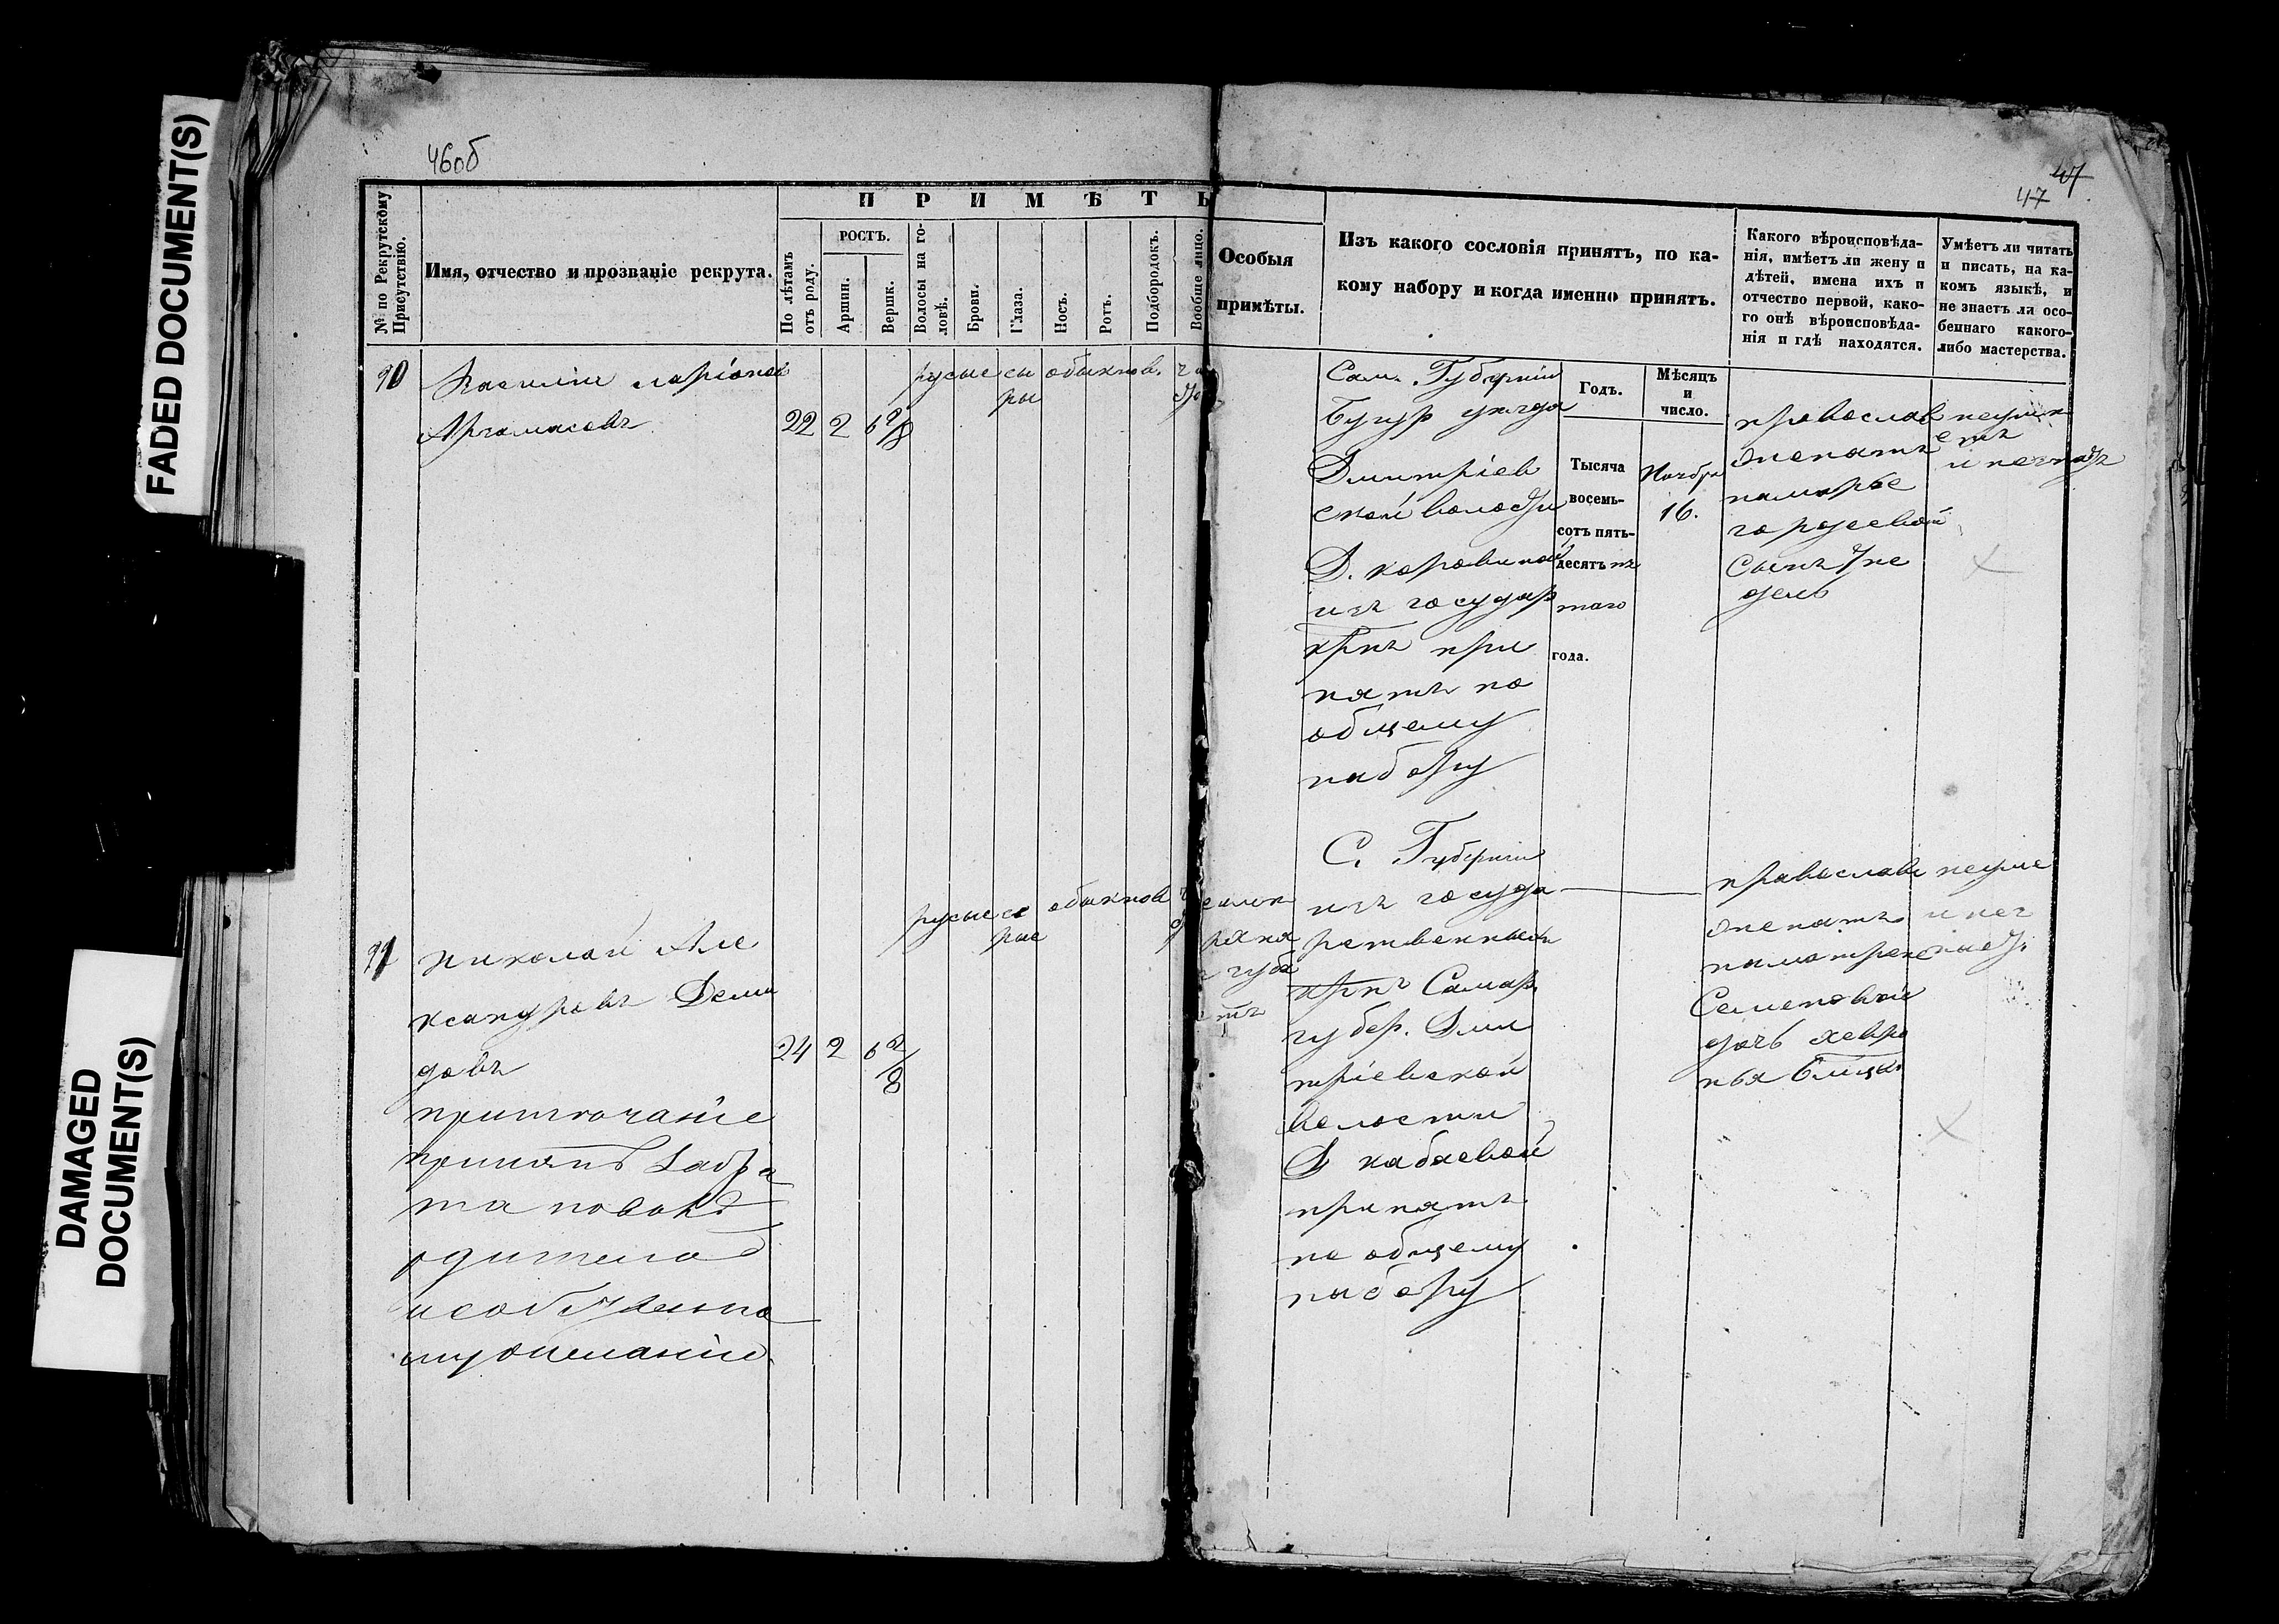 FADED DOCUMENT(S)
DAMAGED
DOCUMENT(S)
46об
47
47
№ по Рекрутскому
Присутствію.
Имя, отчество и прозваніе рекрута.
ПРИМѢТЫ
По лѣтамъ
отъ роду.
РОСТЪ.
Аршин.
Вершк.
Волосы на го-
ловѣ.
Брови.
Глаза.
Носъ.
Ротъ.
Подбородокъ.
Вообще лицо.
Особыя
примѣты.
Изъ какого сословія принятъ, по ка-
кому набору и когда именно принятъ.
Какого вѣроисповѣда-
нія, имѣетъ ли жену и
дѣтей, имена ихъ и
отчество первой, како-
го онѣ вѣроисповѣда-
нія и гдѣ находятся.
Умѣетъ ли читать
и писать, на ка-
комъ языкѣ, и
не знаетъ ли осо-
беннаго какого-
либо мастерства.
90
Василій Ларіонов
Аргамасовъ
22 2 6 2/8
русые
сѣ
ры
обыкнов.
Сам. Губерніи
Бугур уѣзда
Дмитріев
ской волости
Д. Коровиной
изъ государ
крпъ при
нятъ по
общему
набору
Годъ.
Тысяча
восемь-
сотъ пять-
десятъ пя
таго
года.
Мѣсяцъ
и
число.
Ноябрь
16.
православ
женатъ
на марье
гордеевой
сынъ
неумѣ
етъ
91
Николай Але
ксандровъ Деми
довъ
24 2 6 2/8
примѣчаніе
принятъ за бра
та по
одителя
и собственно
му желанію
русые
се
рые
обыкнов
С. Губерніи
изъ госуда
рственныхъ
крпъ Самар.
губер. Дми
тріевской
волости
Д Кабаевой
принятъ
по общему
набору
православ
женатъ
на матрене
Семеновной
дочь хевро
нья
неуме